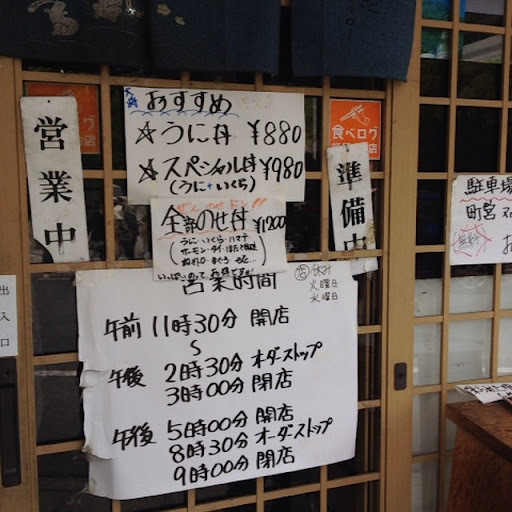 営業中
食べログ
大将
おすすめ
☆うに丼 ¥880
☆スペシャル丼 ¥980
(うに+いくら)
準備中
ぜんぶのせドン!!
全部のせ丼 ¥1200
うに・いくら・ハマチ
サーモン・タイ・ほたて
営業時間
店休み
火曜日
水曜日
午前 11時30分 開店
S
午後 2時30分 オーダストップ
3時00分 閉店
午後 5時00分 開店
8時30分 オーダストップ
9時00分 閉店
出入口
駐車場
町営